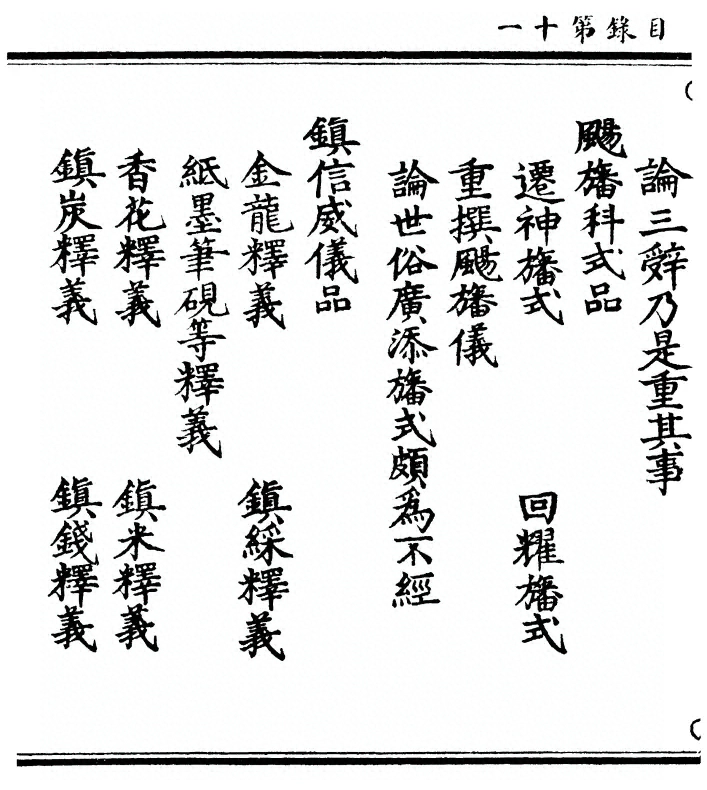 目錄第十一
論三辭乃是重其事
颺旛科式品
遷神旛式　回耀旛式
重撰颺旛儀
論世俗廣添旛式頗為不經
鎮信威儀品
金龍釋義　鎮綵釋義
紙墨筆硯等釋義
香花釋義　鎮米釋義
鎮炭釋義　鎮錢釋義